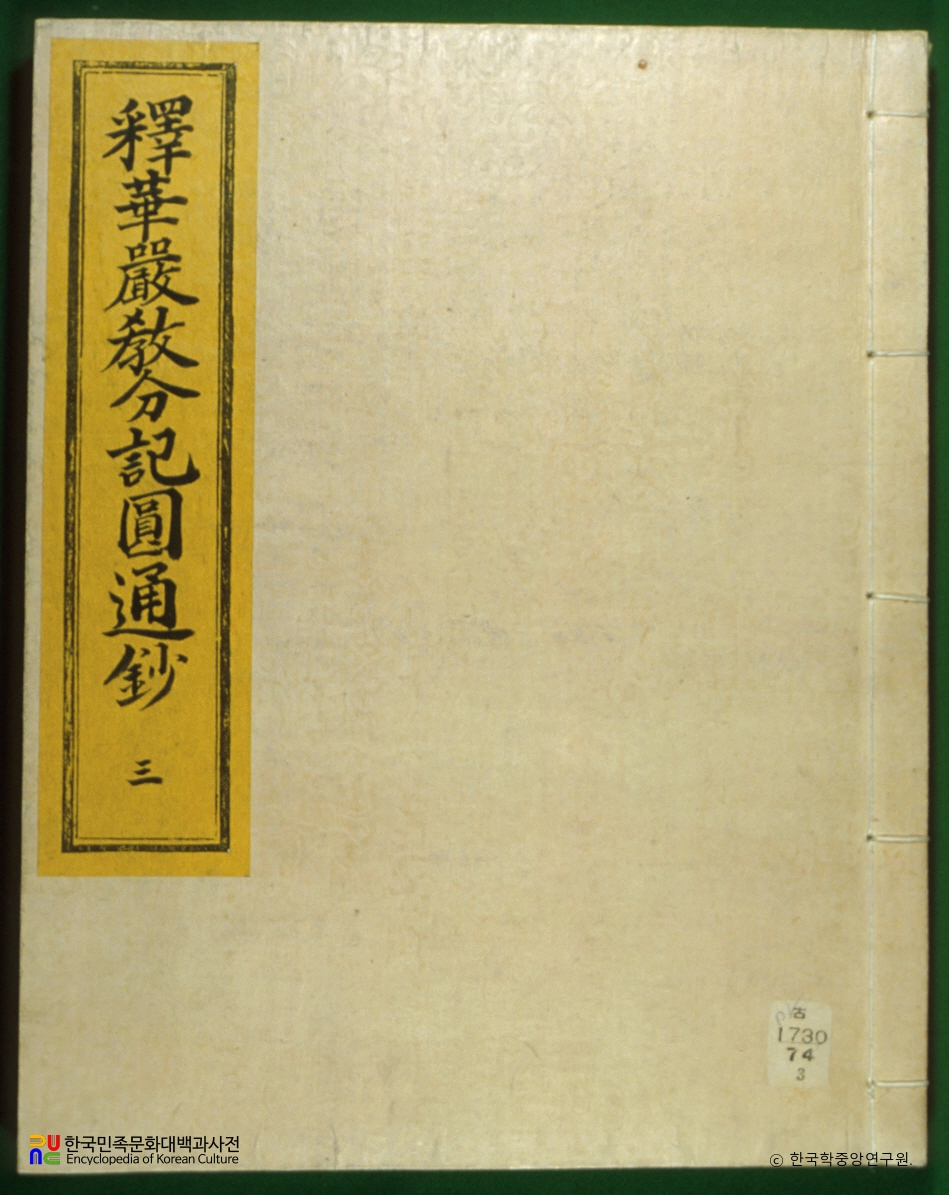 釋華嚴敎分記圓通鈔
三
古
1730
74
3
한국민족문화대백과사전
Encyclopedia of Korean Culture
ⓒ 한국학중앙연구원.